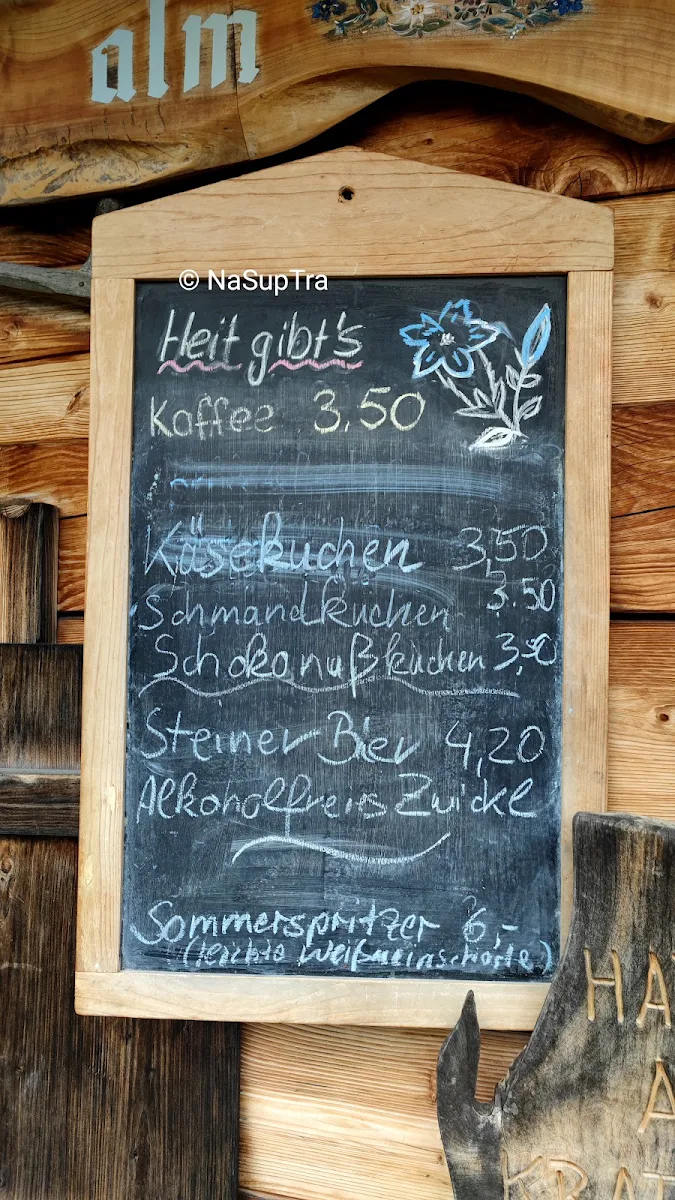 alm
© NaSupTra
Heit gibt's
Kaffee 3,50
Käsekuchen 3,50
Schmandkuchen 3.50
Schokonußkuchen 3,50
Steiner Bier 4,20
Alkoholfreies Zwickl
Sommerspritzer 6,-
(leichte Weißweinschorle)
HA
A
KRAT